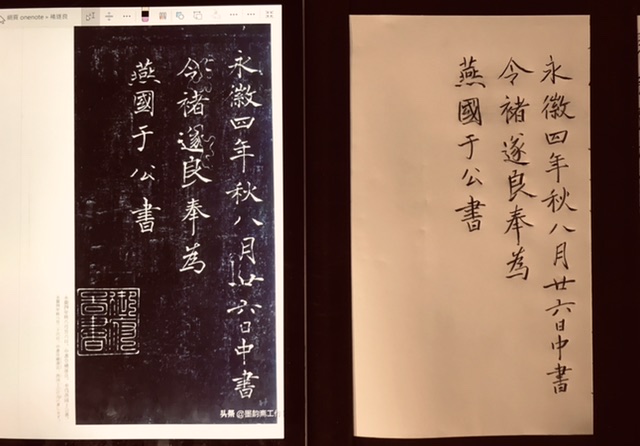 永徽四年秋八月廿六日中書
令褚遂良奉為
燕國于公書
头条 @墨韵商工作
永徽四年秋八月廿六日中書
令褚遂良奉為
燕國于公書